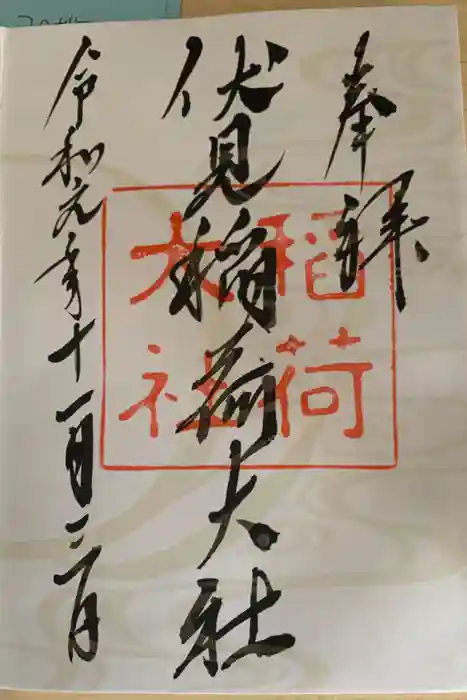 奉拝
伏見稲荷大社
令和元年十一月三日
稲荷
大社